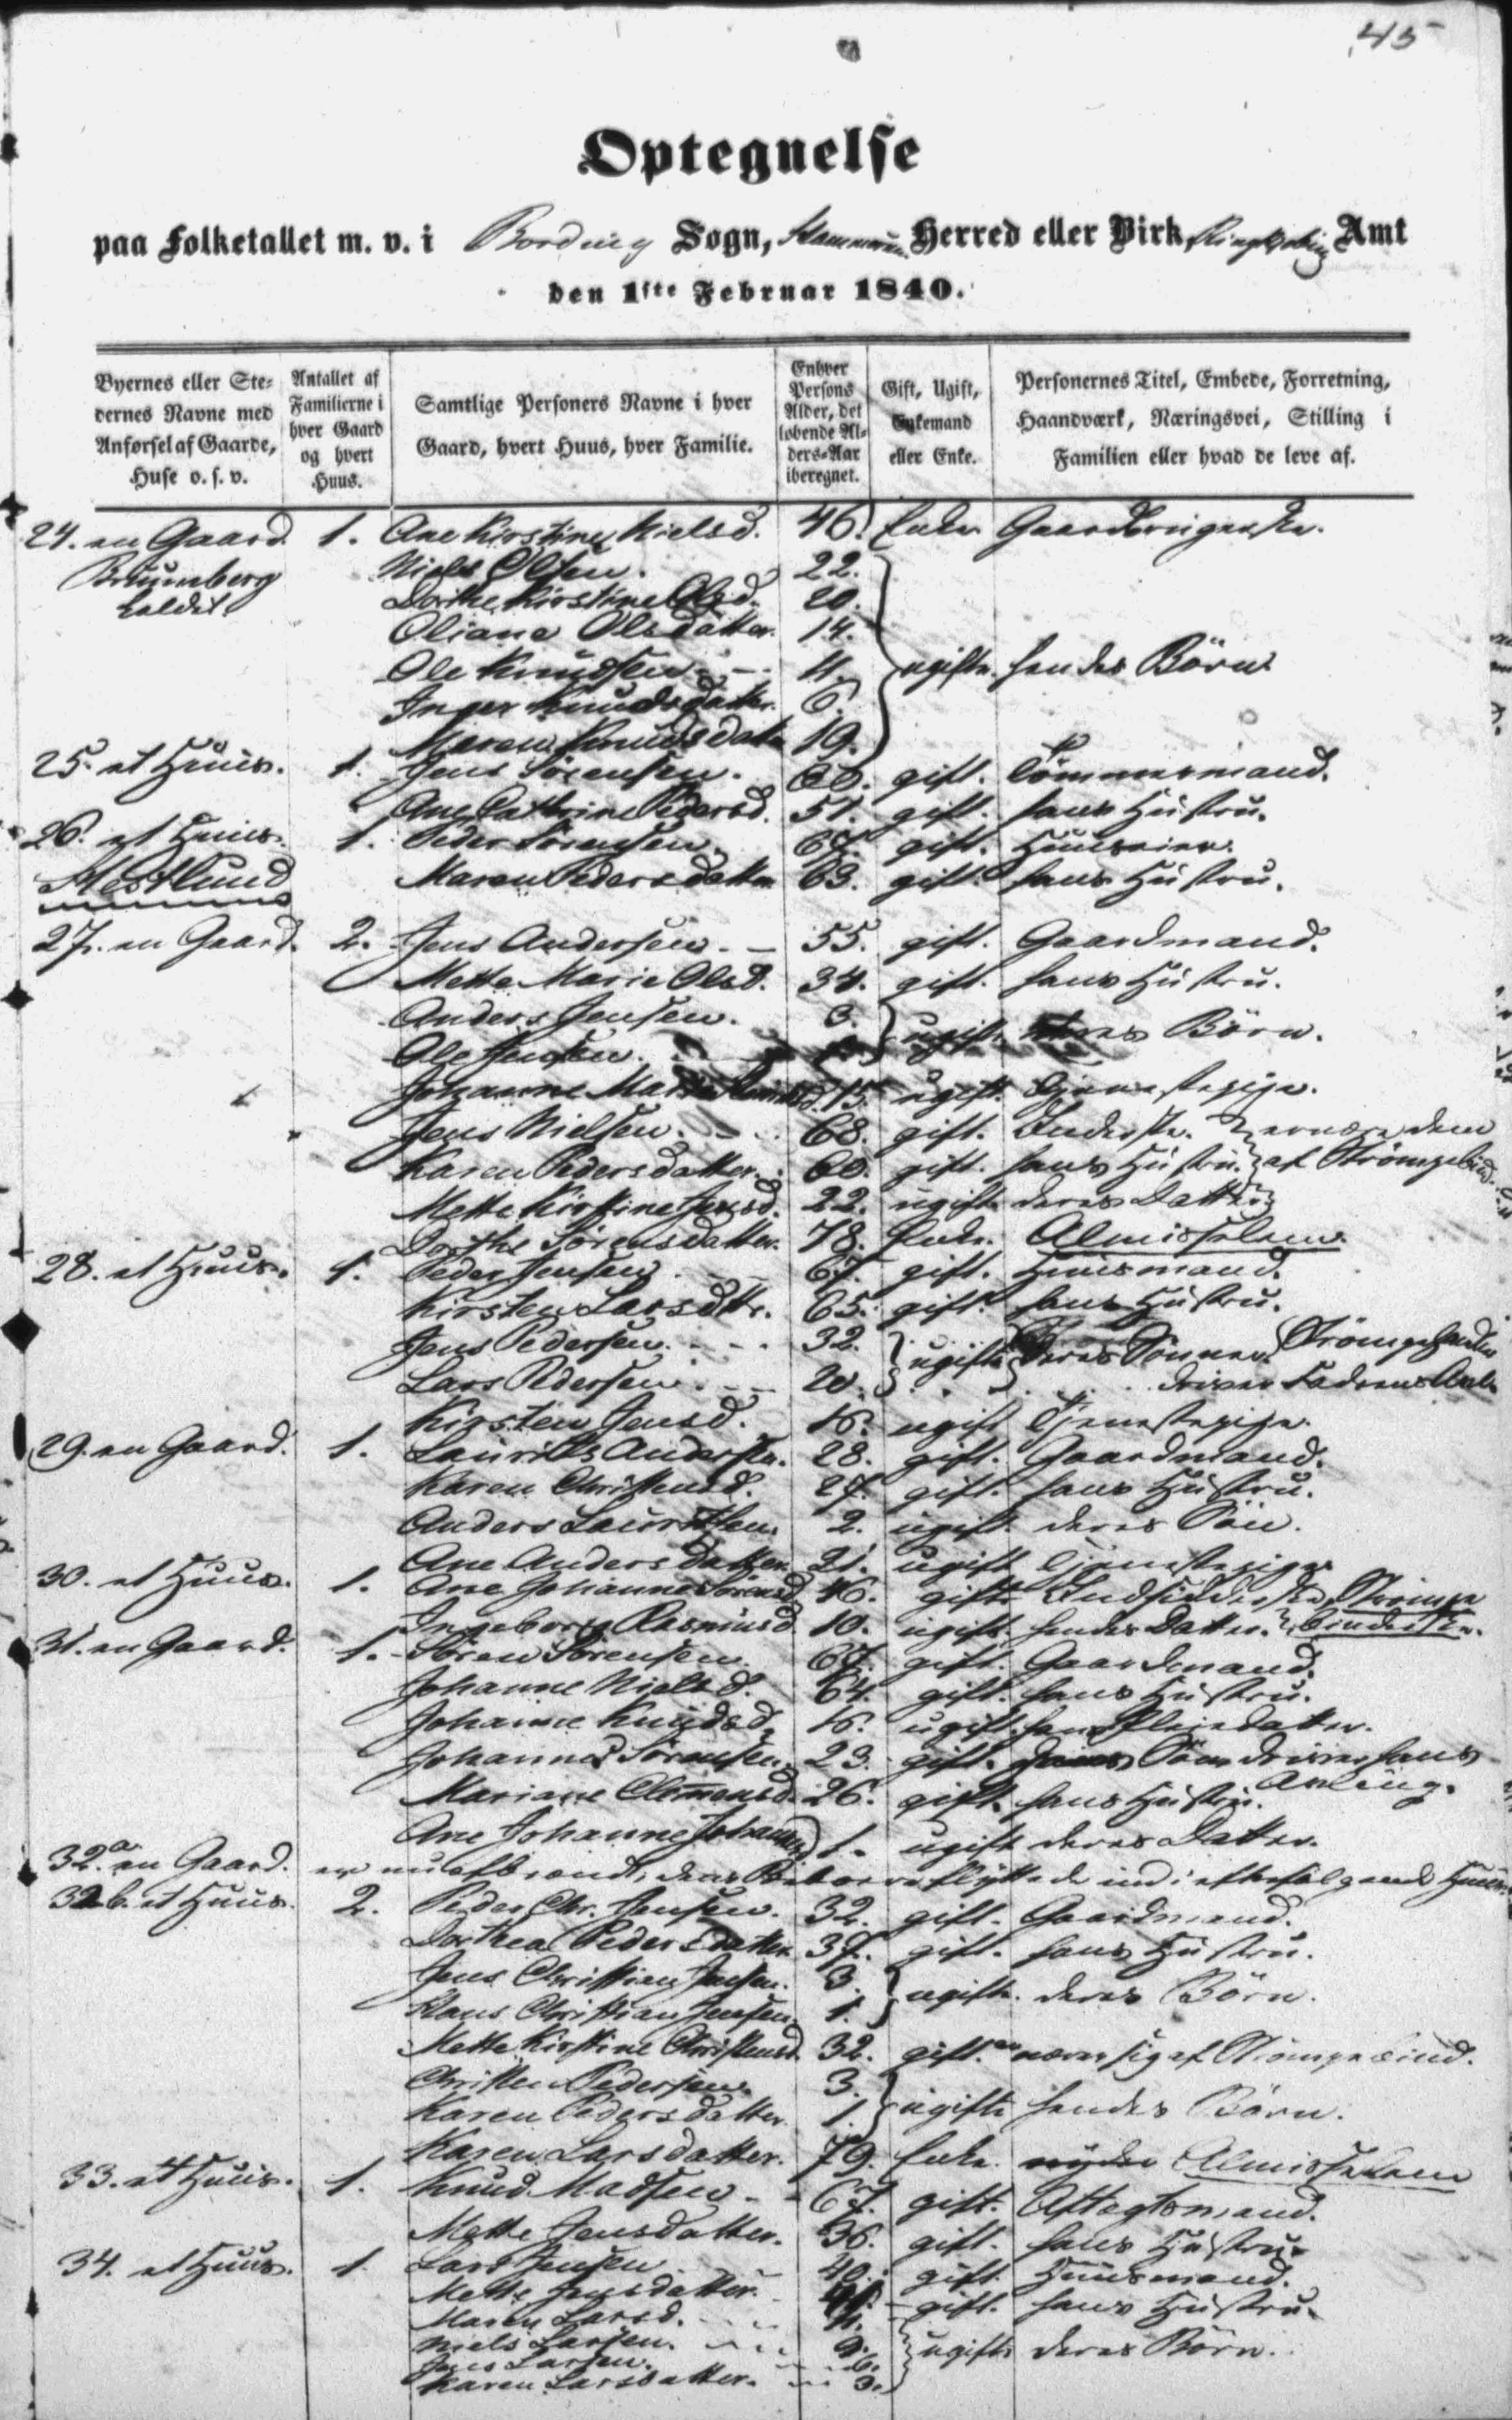 45
Optegnelse
paa Folketallet m. v. i Bording Sogn, Hammerum Herred eller Birk, Ringkjøbing Amt
den 1ste Februar 1840.
Byernes eller Stedernes Navne med Anførsel af Gaarde, Huse o. s. v.
Antallet af Familierne i hver Gaard og hvert Huus.
Samtlige Personers Navne i hver Gaard, hvert Huus, hver Familie.
Enhver Persons Alder, det løbende Alders-Aar iberegnet.
Gift, Ugift, Enkemand eller Enke.
Personernes Titel, Embede, Forretning, Haandværk, Næringsvei, Stilling i Familien eller hvad de leve af.
24. en Gaard 1. Ane Kirstine Nielsd. 46. Enke Gaardbrugerske.
kaldet Niels Olsen. 22.
Dorthe Kirstine Olsd. 20.
Oliane Olsdatter. 14.
Ole Knudsen 11. ugifte hendes Börn
Inger Knudsdatter. 6.
Maren Knudsdatter 19.
25. et Huus. 1. Jens Sörensen. 60. gift. Tömmermand.
Ane Cathrine Pedersd. 51. gift. hans Hustru.
26. et Huus. 1. Peder Sörensen. 67. gift. Huuseier.
Maren Pedersdatter 63. gift. hans Hustru.
27. en Gaard. 2. Jens Andersen. 55. gift. Gaardmand.
Mette Marie Olsd. 34. gift. hans Hustru.
Anders Jensen. 3. ugifte deres Börn.
Ole Jensen.
Johanne 15. ugift. Tjenestepige.
Jens Nielsen. 68. gift. Inderste. ernære dem
Karen Pedersdatter. 60. gift. hans Hustru. af Strömpebind.
Mette Kirstine Jensd. 22. ugift deres Datter
Dorthe Sörensdatter. 78. Enke. Almisselem.
28. et Huus. 1. Peder Jensen. 67. gift. Huusmand.
Kirsten Larsdtr. 65. gift. hans Hustru.
Jens Pedersen. 32. ugifte deres Sönner. Strömpehandler
Lars Pedersen. 20. driver Faderens Avl.
Kirsten Jensd. 16. ugift Tjenestepige.
29. en Gaard. 1. Laurits Andersen. 28. gift. Gaardmand.
Karen Christensd. 27. gift. hans Hustru.
Anders Lauritsen. 2. ugift. deres Sön.
Ane Andersdatter 21. ugift Tjenestepige
30. et Huus. 1. Ane Johanne Sörensd. 46. gift. Indsidderske, Strömpe
Ingeborg Rasmusd. 10. ugift. hendes Datter. binderske.
31. en Gaard. 1. Sören Sörensen 67. gift. Gaardmand.
Johanne Nielsd. 64. gift. hans Hustru.
Johanne Knudsd. 16. ugift. hans Pleiedatter.
Johannes Sörensen. 23. gift. Sön driver hans
Mariane Clemensd. 26. gift. hans Hustru. Avling.
Ane Johanne 1. ugift deres Datter.
32.a en Gaard. er nu afbrændt, dens Beboere flyttede ind i efterfölgende Huus.
32b. et Huus. 2. Peder Chr. Jensen. 32. gift. Gaardmand.
Dorthea Pedersdatter 37. gift. hans Hustru.
Jens Christian Jensen. 3. ugifte. deres Börn.
Klaus Christian Jensen. 1.
Mette Kirstine Christensd. 32. gift. ernærer sig af Strömpebind.
Christen Pedersen. 3. ugifte hendes Börn.
Karen Pedersdatter 1.
Karen Larsdatter. 79. Enke. nyder Almisselem
33. et Huus. 1. Knud Madsen. 67. gift. Aftægtsmand.
Mette Jensdatter. 36. gift. hans Hustru.
34. et Huus. 1. Lars Jensen. 40. gift. Huusmand.
Mette Jensdatter. gift. hans Hustru.
Maren Larsd. 11.
Niels Larsen. 9. ugifte deres Börn.
Jens Larsen. 6.
Karen Larsdatter. 3.